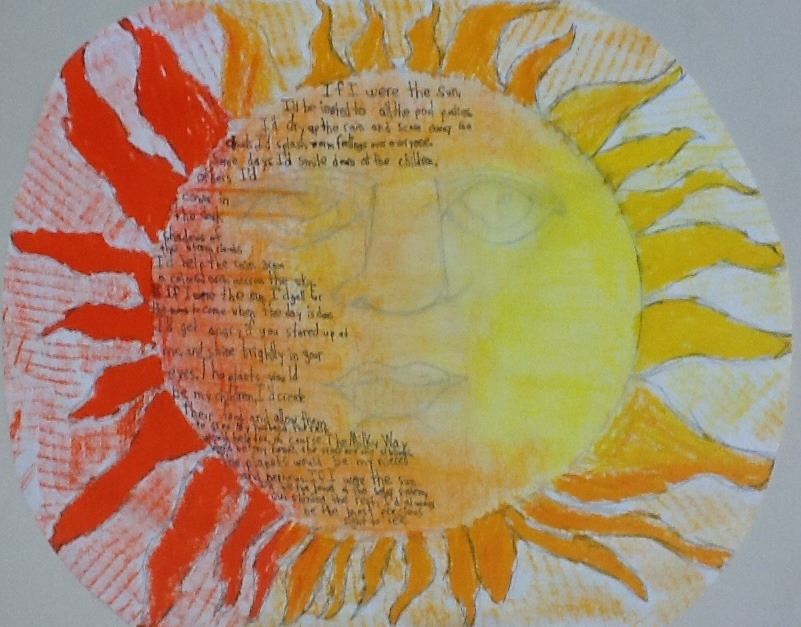 If I were the Sun,
I'd be invited to all the pool parties
I'd dry up the rain and scare away the
clouds. I'd splash warm feelings over everyone.
Some days I'd smile down at the children,
others I'd
cower in
the dark
shadows of
the stormy clouds
I'd help the rain
a colorful arch across the sky.
If I were the sun, I'd yell for
the moon to come when the day is done
I'd get angry if you stared up at
me, and shine brightly in your
eyes. The plants would
be my children, I'd create
their food and allow them
to
of course. The Milky Way
would be my home, the stars
The planets would be my nieces
and nephews. If I were the sun
I'd always
be the most precious
sight to see.